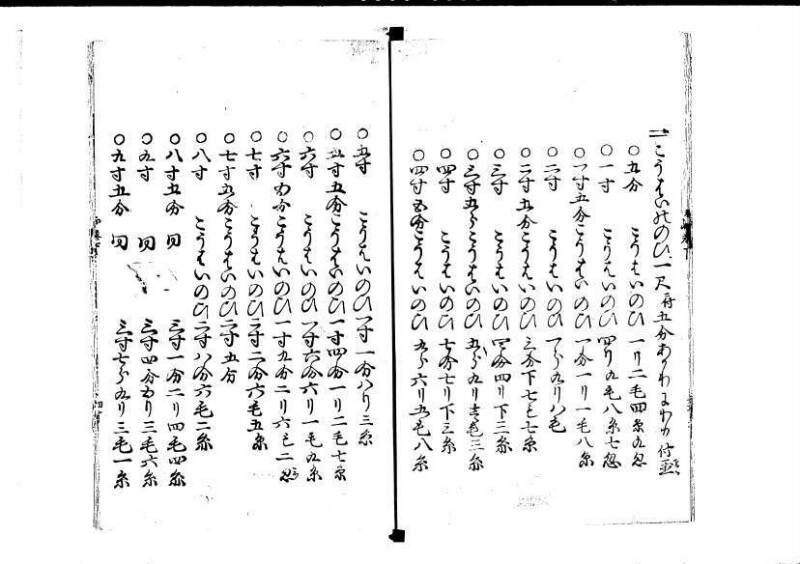 一 こうはいのゝひ 一尺ニ付五分
〇五分 こうはいのひ 一リ二毛四糸九忽
〇一寸 こうはいのひ 四リ九毛八糸七忽
〇一寸五分こうはいのひ 一分一リ一毛八糸
〇二寸 こうはいのひ 一分九リ八毛
〇二寸五分こうはいのひ 三分下七毛七糸
〇三寸 こうはいのひ 四分四リ下三糸
〇三寸五分こうはいのひ 五分九リ 毛三糸
〇四寸 こうはいのひ 七分七リ下三糸
〇四寸五分こうはいのひ 九分六リ五毛八糸
〇五寸 こうはいのひ一寸一分八リ三糸
〇五寸五分こうはいのひ一寸四分一リ二毛七糸
〇六寸 こうはいのひ一寸六分六リ一毛九糸
〇六寸五分こうはいのひ一寸九分二リ六毛二忽
〇七寸 こうはいのひ二寸二分六毛五糸
〇七寸五分こうはいのひ二寸五分
〇八寸 こうはいのひ二寸八分六毛二糸
〇八寸五分 同 三寸一分二リ四毛四糸
〇九寸 同 三寸四分五リ三毛六糸
〇九寸五分 同 三寸七分九リ三毛一糸